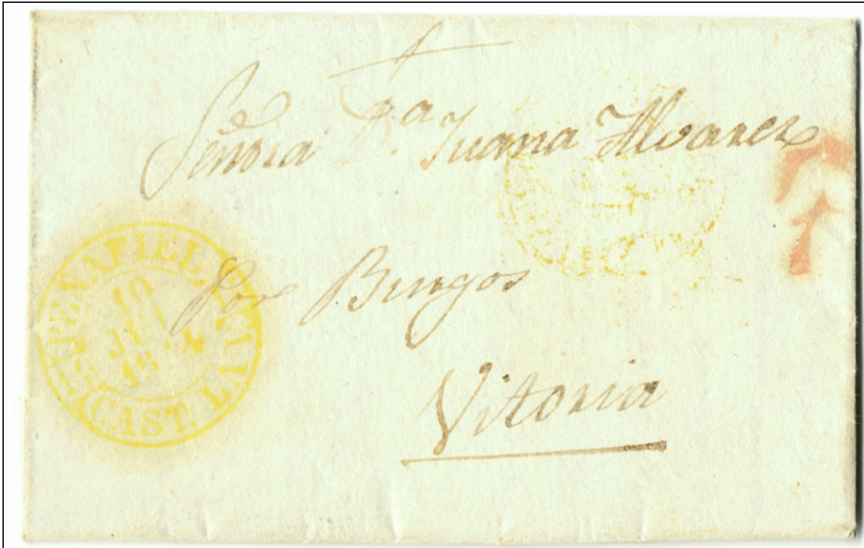 Señora D.ª Juana Alvarez
Por Burgos
Vitoria
PEÑAFIEL.
10
CAST. LA V.